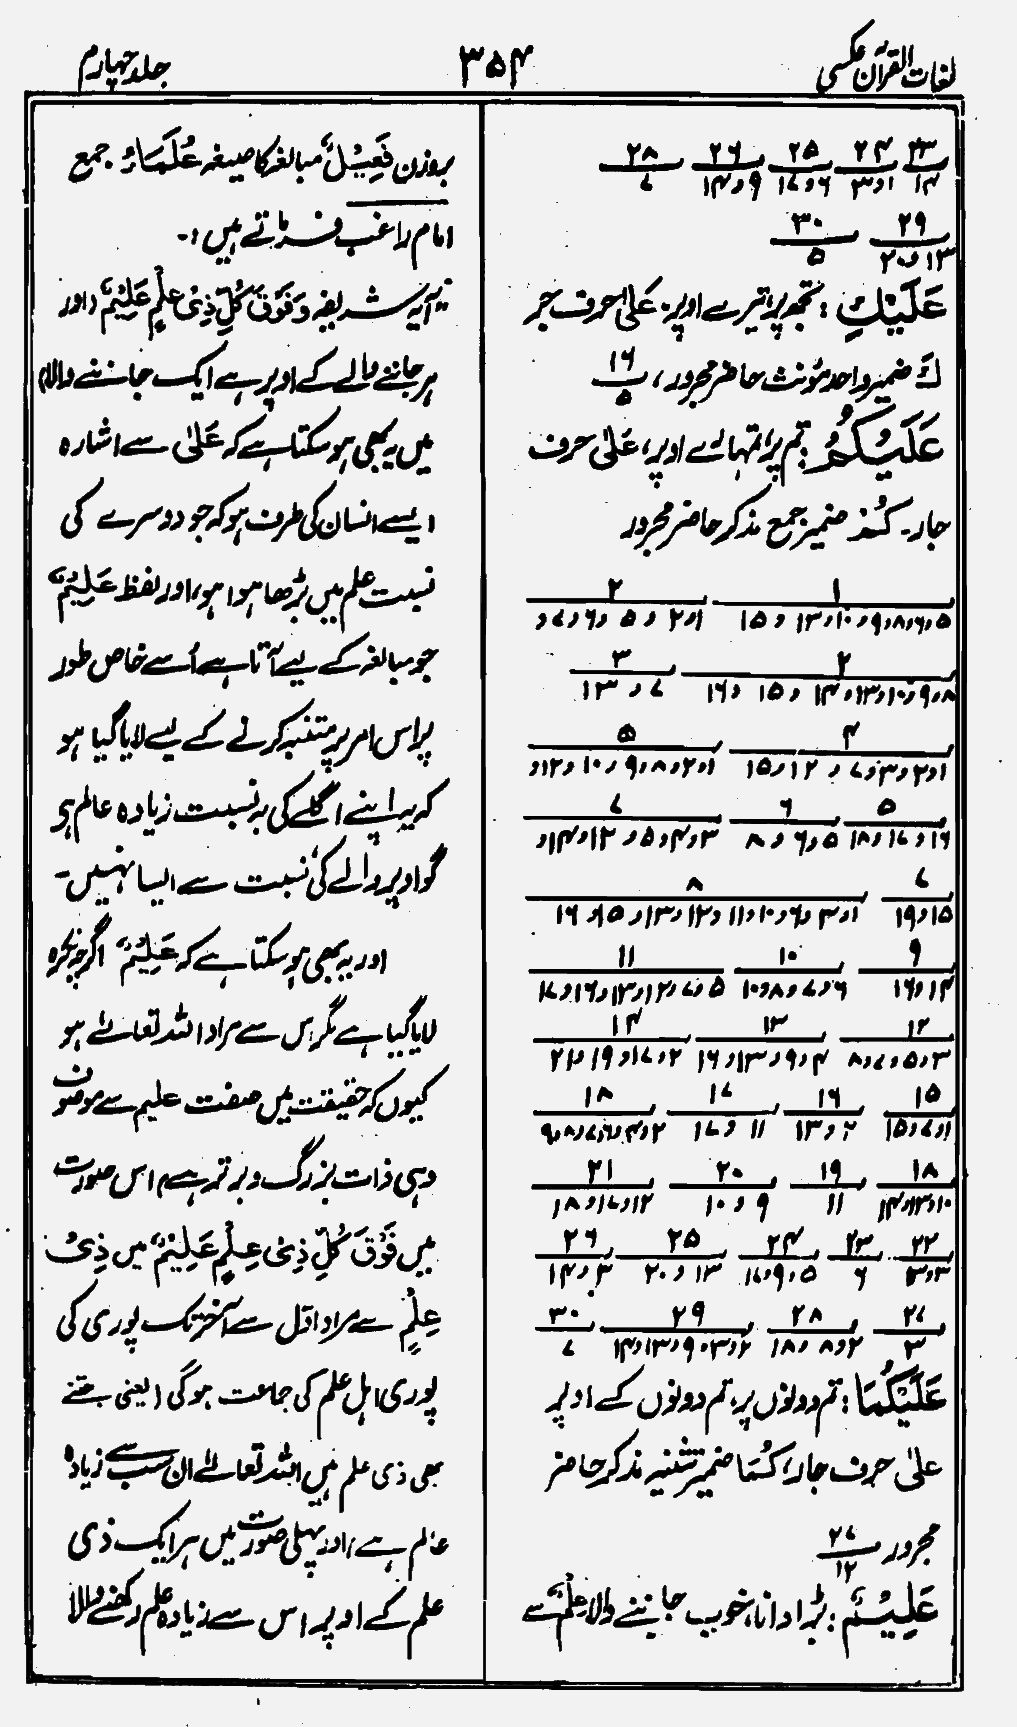 لغات القرآن عکسی
۳۵۴
جلد چہارم
۲۳ ۲۴ ۲۵ ۲۶ ۲۸
۱۴ ۱و۳ ۶و۱۷ ۹و۱۴ ۷
۲۹ ۳۰
۱۳و۲۰ ۵
عَلَیْكِ : تجھ پر، تیرے اوپر۔ عَلیٰ حرف جر
كَ ضمیر واحد مؤنث حاضر مجرور، ۱۶
۵
عَلَیْكُمْ : تم پر، تمہارے اوپر، عَلیٰ حرف
جار۔ كُمْ ضمیر جمع مذکر حاضر مجرور
۱ ۲
۵و۶و۸و۹و۱۰و۱۳ و ۱۵ ۱و۲ و ۵ و۶و۷و
۲ ۳
۸و۹و۱۰و۱۳و۱۴ و ۱۵ و۱۶ ۷ و ۱۳
۴ ۵
۱و۲و۳و۷ و ۱۲و۱۵ ۱و۲و۸و۹ و۱۰ و۱۲و
۵ ۶ ۷
۱۶و۱۷و۱۸ ۵و۶ و ۸ ۳و۴و۵و ۱۳ و۱۴و
۷ ۸
۱۵و۱۹ ۱و۴و۶و۱۰و۱۱ و۱۲و۱۳و ۱۵و ۱۶
۹ ۱۰ ۱۱
۱۴و۱۶ ۶و۷و۸و۱۰ ۵ و۷و۱۲و۱۳و۱۶و۱۷
۱۲ ۱۳ ۱۴
۳و۵و۷و۸ ۴و۹و۱۳و۱۶ ۲و۱۷و۱۹ و۲۱
۱۵ ۱۶ ۱۷ ۱۸
۱و۷و۱۵ ۲و۱۳ ۱۱ و۱۷ ۲و۴و۶و۷و۸و۹
۱۸ ۱۹ ۲۰ ۲۱
۱۰و۱۳و۱۴ ۱۱ ۹ و ۱۰ ۱۲و۱۷و۱۸
۲۲ ۲۳ ۲۴ ۲۵ ۲۶
۳و۱۳ ۶ ۵و۹و۱۷ ۱۳ و۲۰ ۳ و۱۴
۲۷ ۲۸ ۲۹ ۳۰
۳ ۲و۸ و۱۸ ۲و۳و۹و۱۳و۱۴ ۷
عَلَیْكُمَا : تم دونوں پر، تم دونوں کے اوپر
علیٰ حرف جار، كُمَا ضمیر تثنیہ مذکر حاضر
مجرور ۲۷
۱۲
عَلِیْمٌ : بڑا دانا، خوب جاننے والا عِلْمٌ سے
بروزن فَعِیْلٌ مبالغہ کا صیغہ عُلَمَاءُ جمع
امام راغب فرماتے ہیں :۔
"آیہ شریفہ وَفَوْقَ كُلِّ ذِیْ عِلْمٍ عَلِیْمٌ (اور
ہر جاننے والے کے اوپر ہے ایک جاننے والا)
میں یہ بھی ہو سکتا ہے کہ عَلیٰ سے اشارہ
ایسے انسان کی طرف ہو کہ جو دوسرے کی
نسبت علم میں بڑھا ہوا ہو، اور لفظ عَلِیْمٌ
جو مبالغہ کے لیے آتا ہے اُسے خاص طور
پر اس امر پر متنبہ کرنے کے لیے لایا گیا ہو
کہ یہ اپنے اگلے کی بہ نسبت زیادہ عالم ہی
گو اوپر والے کی نسبت سے ایسا نہیں۔
اور یہ بھی ہو سکتا ہے کہ عَلِیْمٌ اگرچہ نکرہ
لایا گیا ہے مگر اس سے مراد اللہ تعالےٰ ہو
کیوں کہ حقیقت میں صفت علیم سے موصوف
وہی ذات بزرگ و برتر ہے، اس صورت
میں فَوْقَ كُلِّ ذِیْ عِلْمٍ عَلِیْمٌ میں ذِیْ
عِلْمٍ سے مراد اول سے آخر تک پوری کی
پوری اہل علم کی جماعت ہوگی (یعنی جتنے
بھی ذی علم ہیں اللہ تعالےٰ ان سب سے زیادہ
عالم ہے) اور پہلی صورت میں ہر ایک ذی
علم کے اوپر اس سے زیادہ علم رکھنے والا